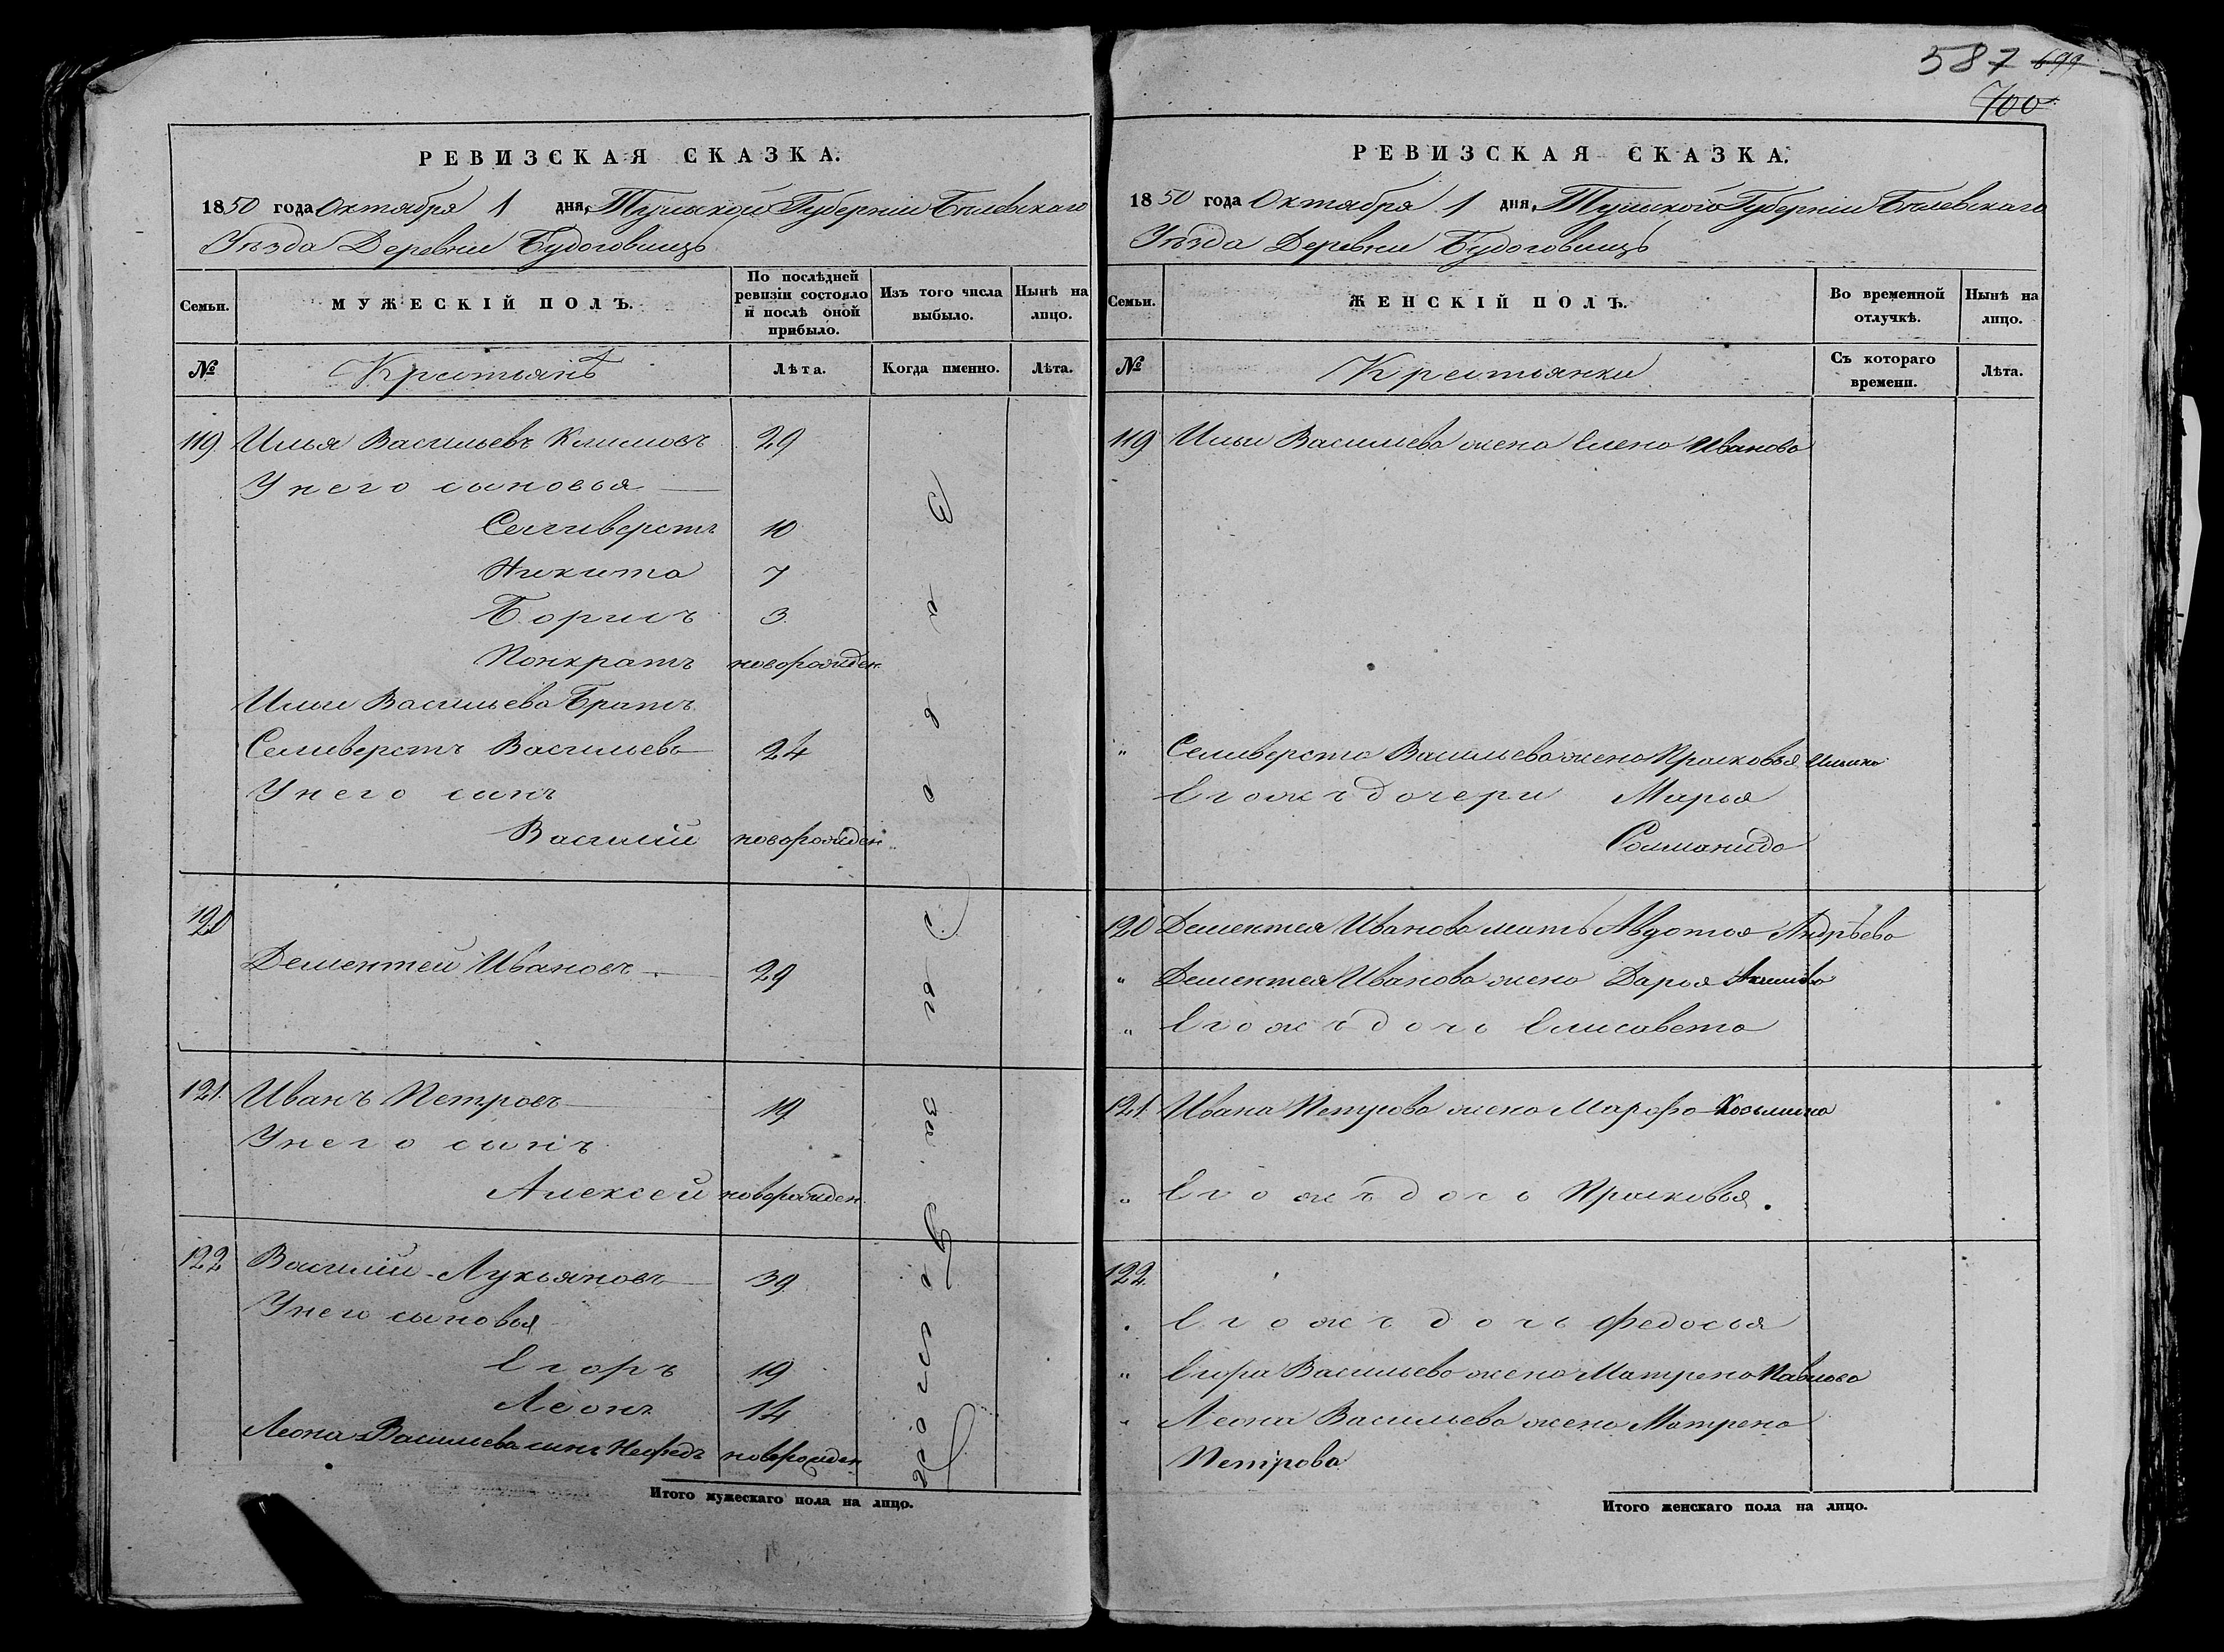 587 699
700
РЕВИЗСКАЯ СКАЗКА.
1850 года Октября 1 дня, Тульской Губерніи Бѣлевскаго
Уѣзда Деревни Будоговищъ
Семьи.
МУЖЕСКІЙ ПОЛЪ.
По послѣдней
ревизіи состояло
и послѣ оной
прибыло.
Изъ того числа
выбыло.
Нынѣ на
лицо.
№
Крестьянъ
Лѣта.
Когда именно.
Лѣта.
119 Илья Васильевъ Климовъ 29
У него сыновья
Селиверстъ 10
Никита 7
Борисъ 3
Понкратъ новорожден.
Ильи Васильева Братъ
Селиверстъ Васильевъ 24
У него сынъ
Василий новорожден.
120
Дементей Ивановъ 29
121. Иванъ Петровъ 19
У него сынъ
Алексей новорожден.
122 Василий Лукьяновъ 39
У него сыновья
Егоръ 19
Леонъ 14
Леона Васильева сынъ Нефедъ новорожден
Итого мужескаго пола на лицо.
РЕВИЗСКАЯ СКАЗКА.
1850 года Октября 1 дня, Тульской Губерніи Бѣлевскаго
Уѣзда Деревни Будоговищъ
Семьи.
ЖЕНСКІЙ ПОЛЪ.
Во временной
отлучкѣ.
Нынѣ на
лицо.
№
Крестьянки
Съ котораго
времени.
Лѣта.
119 Ильи Васильева жена Елена Иванова
" Селиверста Васильева жена Прасковья Ильина
Егожъ дочери Марья
Соломонида
120 Дементея Иванова мать Авдотья Андрѣева
" Дементея Иванова жена Дарья
" Егожъ дочь Елисавета
121. Ивана Петрова жена Марфа Козьмина
" Егожъ дочь Прасковья.
122.
" Егожъ дочь Федосья
" Егора Васильева жена Матрена Павлова
" Леона Васильева жена Матрена
Петрова
Итого женскаго пола на лицо.